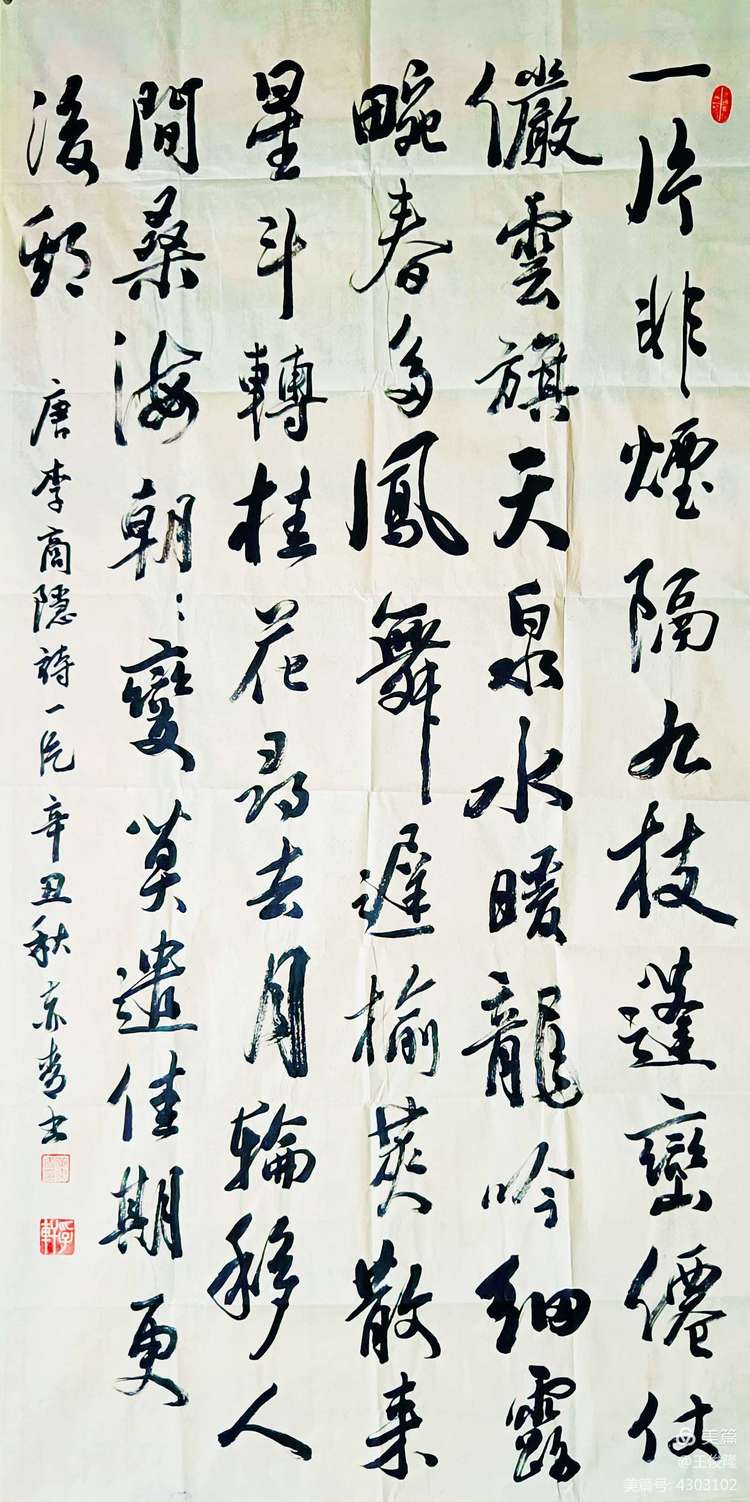 一片非煙隔九枝蓬巒僊仗
儼雲旗天泉水暖龍吟細露
畹春多鳳舞遲榆莢散来
星斗轉桂花尋去月輪移人
間桑海朝〻變莫遣佳期更
後期
唐李商隱詩一片辛丑秋亦青书
美篇
@王俊隆
美篇号: 4303102